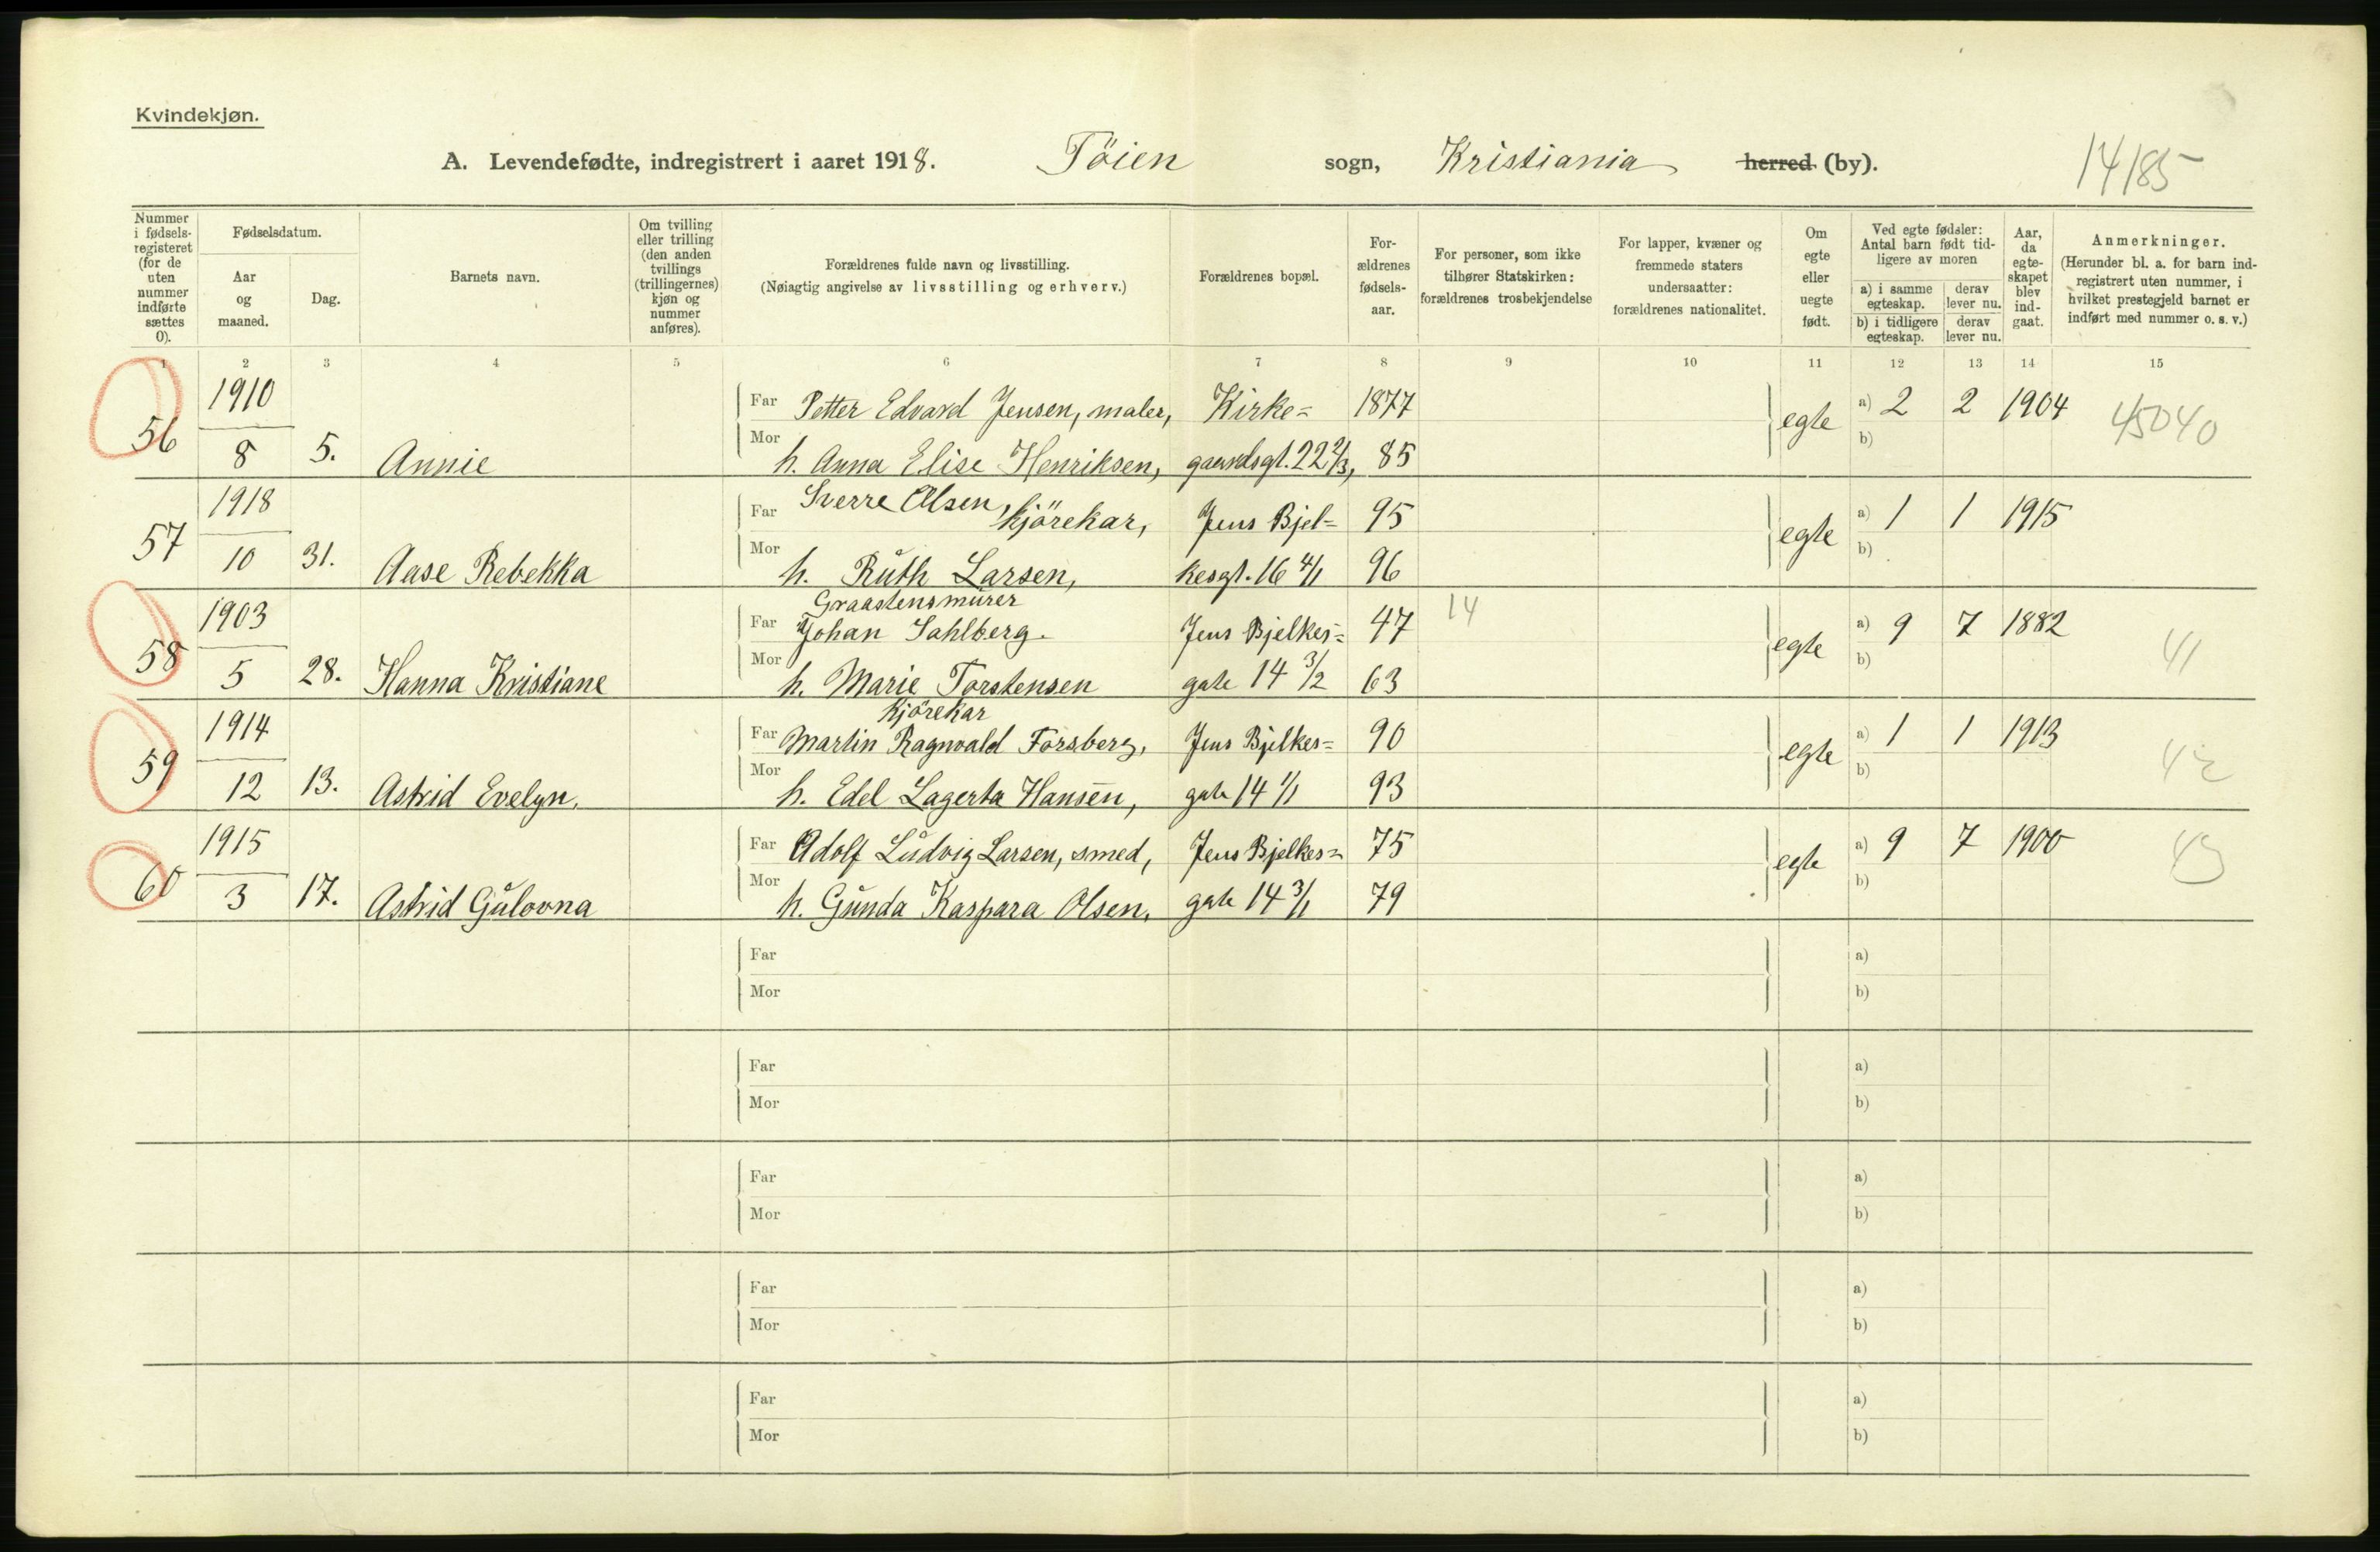 Kvindekjøn.
A. Levendefødte, indregistrert i aaret 1918. Töien sogn, Kristiania herred (by). 14185
Nummer i fødsels-registeret (for de uten nummer indførte sættes 0).
Fødselsdatum.
Aar og maaned.
Dag.
Barnets navn.
Om tvilling eller trilling (den anden tvillings (trillingernes) kjøn og nummer anføres).
Forældrenes fulde navn og livsstilling.
(Nøiagtig angivelse av livsstilling og erhverv.)
Forældrenes bopæl.
For-ældrenes fødsels-aar.
For personer, som ikke tilhører Statskirken: forældrenes trosbekjendelse
For lapper, kvæner og fremmede staters undersaatter: forældrenes nationalitet.
Om egte eller uegte født.
Ved egte fødsler: Antal barn født tid-ligere av moren
a) i samme egteskap.
derav lever nu.
b) i tidligere egteskap.
derav lever nu.
Aar, da egte-skapet blev ind-gaat.
Anmerkninger.
(Herunder bl. a. for barn ind-registrert uten nummer, i hvilket prestegjeld barnet er indført med nummer o. s. v.)
1 2 3 4 5 6 7 8 9 10 11 12 13 14 15
1910 Far Petter Edvard Jensen, maler, Kirke= 1877 egte a) 2 2 1904 45040
56 8 5. Annie Mor h. Anna Elise Henriksen, gaardsgt. 22 2/3, 85 b)
1918 Far Sverre Olsen, kjörekar, Jens Bjel= 95 egte a) 1 1 1915
57 10 31. Aase Rebekka Mor h. Ruth Larsen, kesgt. 16 4/1 96 b)
Graastensmurer
1903 Far Johan Sahlberg. Jens Bjelkes= 47 14 egte a) 9 7 1882 41
58 5 28. Hanna Kristiane Mor h. Marie Torstensen gate 14 3/2 63 b)
Kjörekar
1914 Far Martin Ragnvald Forsberg, Jens Bjelkes= 90 egte a) 1 1 1913 42
59 12 13. Astrid Evelyn. Mor h. Edel Lagerta Hansen, gate 14 1/1 93 b)
1915 Far Adolf Ludvig Larsen, smed, Jens Bjelkes= 75 egte a) 9 7 1900 43
60 3 17. Astrid Gulovna Mor h. Gunda Kaspara Olsen, gate 14 3/1 79 b)
Far a)
Mor b)
Far a)
Mor b)
Far a)
Mor b)
Far a)
Mor b)
Far a)
Mor b)